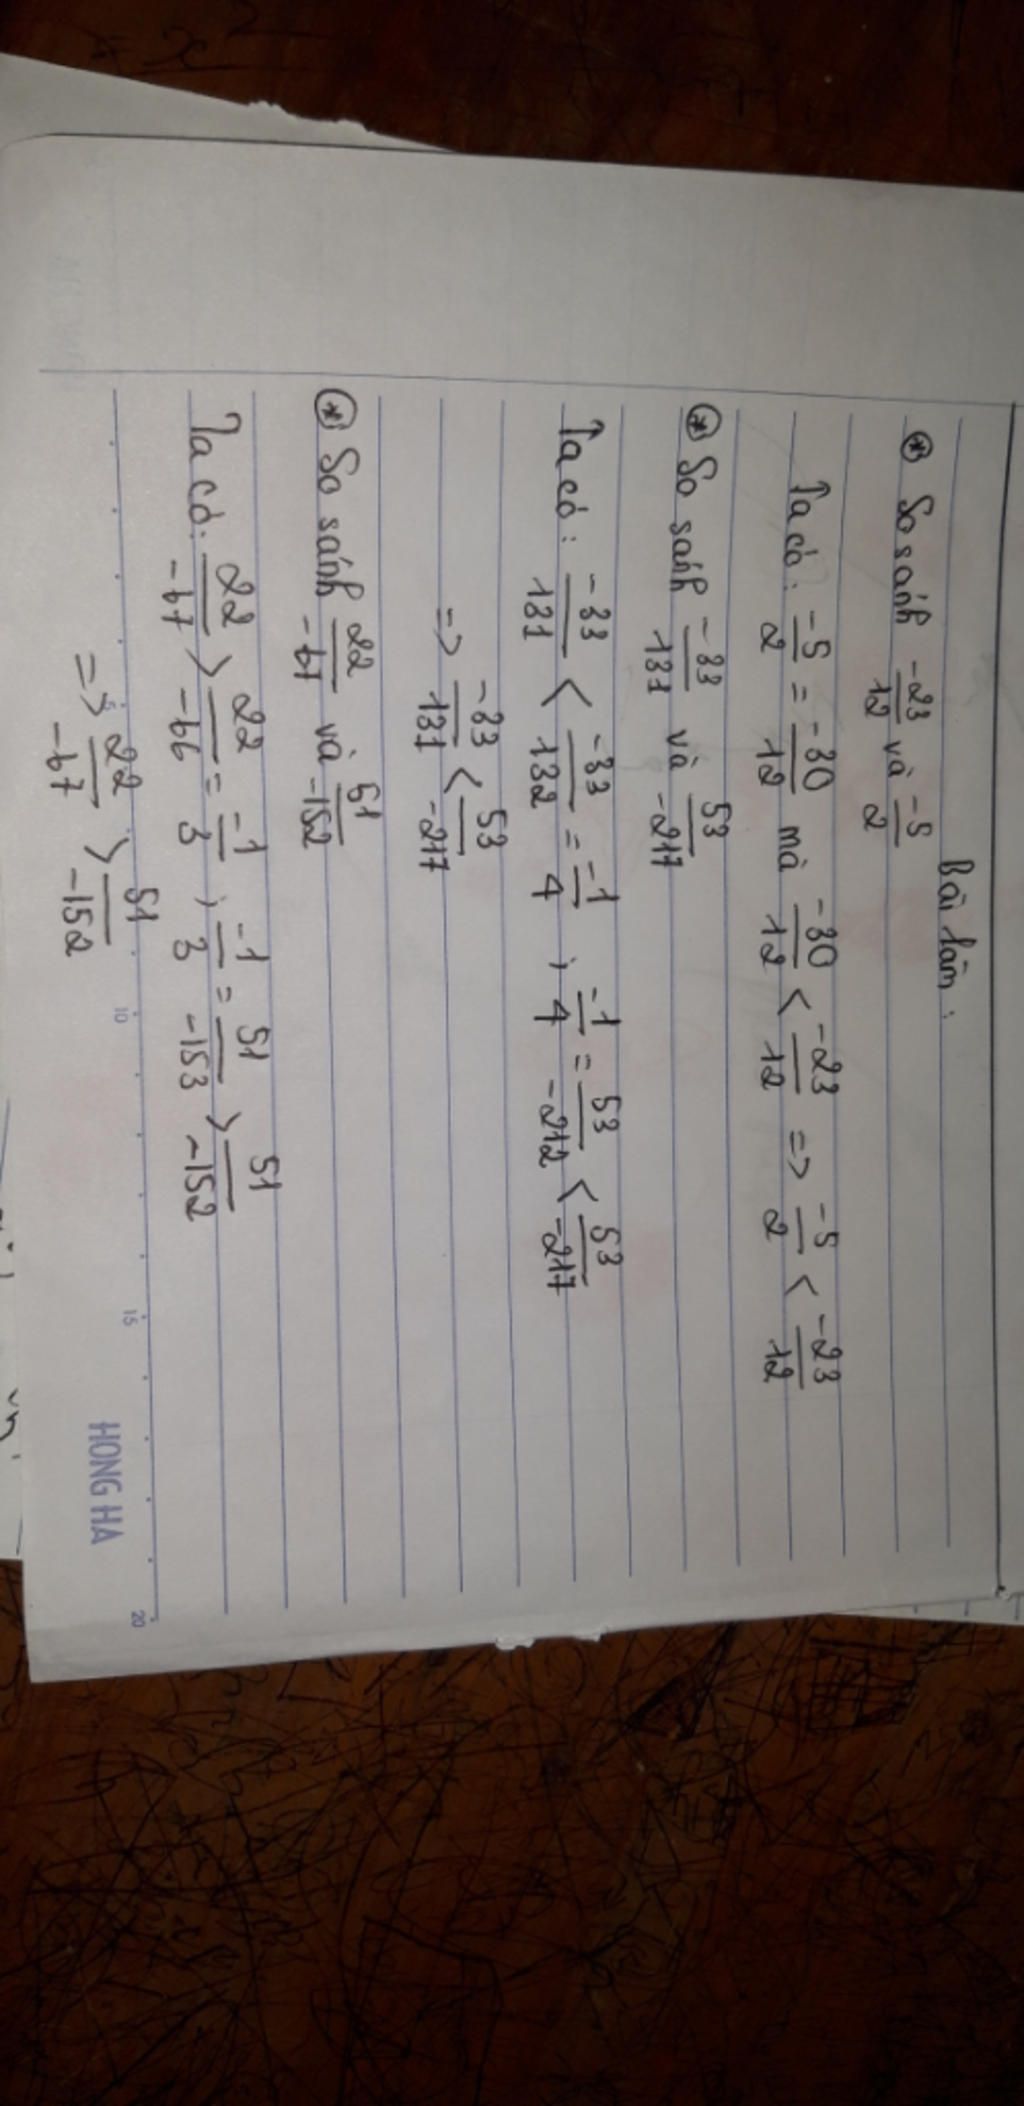 Bài làm:
⊛ So sánh -23/12 và -5/2
Ta có: -5/2 = -30/12 mà -30/12 < -23/12 => -5/2 < -23/12
⊛ So sánh -33/131 và 53/-217
Ta có: -33/131 < -33/132 = -1/4 , -1/4 = 53/-212 < 53/-217
=> -33/131 < 53/-217
⊛ So sánh 22/-67 và 51/-152
Ta có: 22/-67 > 22/-66 = -1/3 , -1/3 = 51/-153 > 51/-152
=> 22/-67 > 51/-152
5 10 15 20
HONG HA